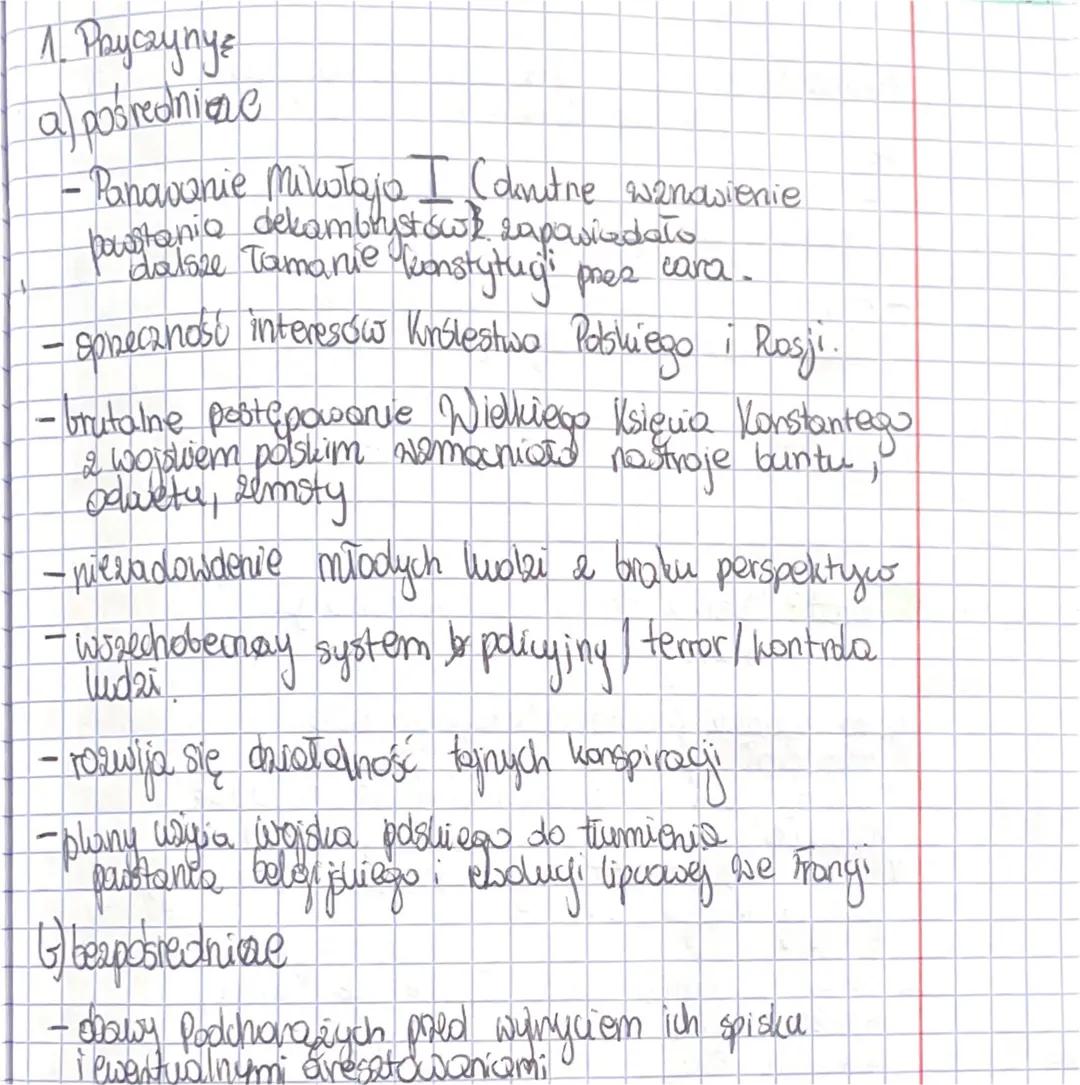 1. Przyczyny:
a) pośrednie
- Panowanie Mikołaja I (okrutne wznowienie
powstania dekabrystów) zapowiadało
dalsze łamanie konstytucji przez cara.
- sprzeczność interesów Królestwa Polskiego i Rosji.
- brutalne postępowanie Wielkiego Księcia Konstantego
z wojskiem polskim wzmacniało nastroje buntu,
odwetu, zemsty
- niezadowolenie młodych ludzi z braku perspektyw
- wszechobecny system policyjny / terror / kontrola
ludzi.
- rozwija się działalność tajnych konspiracji
- plany użycia wojska polskiego do tłumienia
powstania belgijskiego i rewolucji lipcowej we Francji
b) bezpośrednie
- obawy Podchorążych przed wykryciem ich spisku
i ewentualnymi aresztowaniami